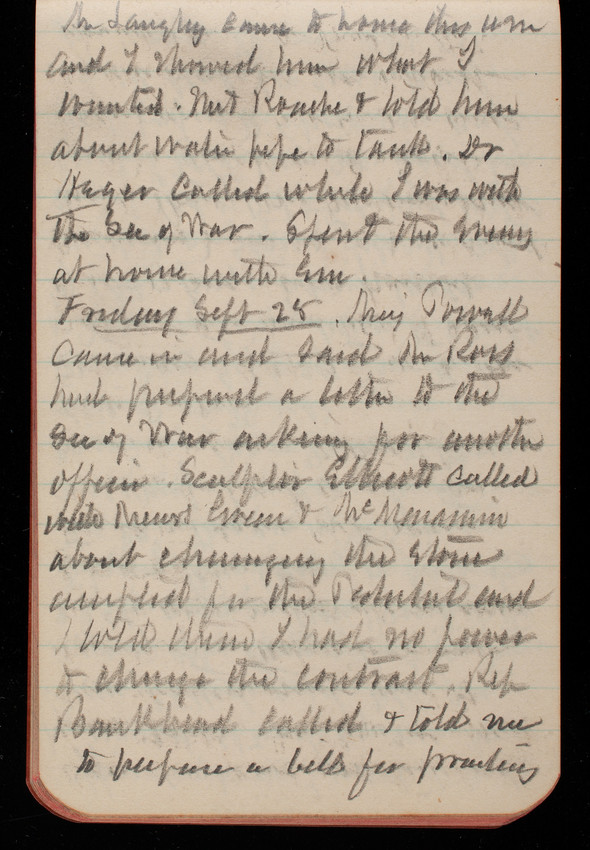 Mr Langley came to house this um
and I showed him what I
wanted. Met Roache & told him
about water pipe to tank. Dr
Hager called while I was with
the Sec of War. Spent the Evening
at home with Em.
Friday Sept 28. Maj Powell
came in and said Mr Ross
had prepared a letter to the
Sec of War asking for another
officer. Sculptor Ellicott called
with Messrs Green & McMenamin
about changing the stone
accepted for the Pedestal and
I told them I had no power
to change the contract. Rep
Bankhead called & told me
to prepare a bill for